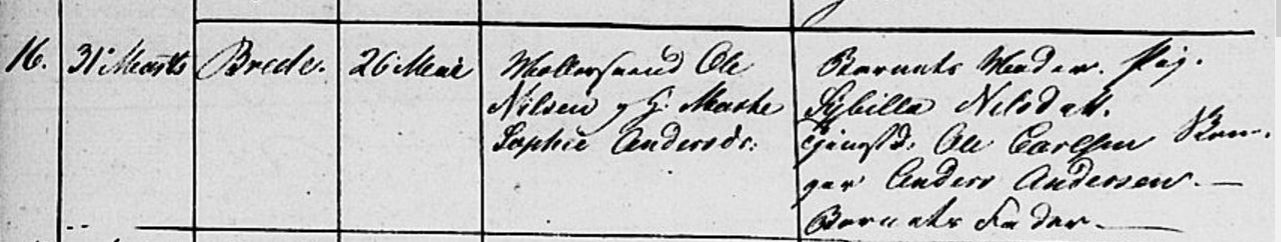 16.
31 Marts
Brede.
26 Mai
Møllersvend Ole
Nilsen og H. Marthe
Sophie Andersdr.
Barnets Moder. Pig.
Sybilla Nilsdatt.
Tjenestd. Ole Carlsen
ger Anders Andersen. —
Barnets Fader. —